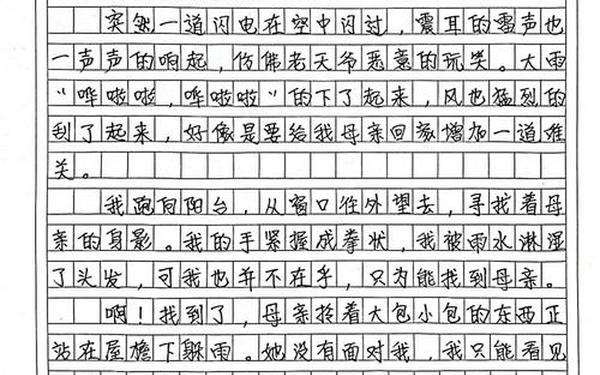 突然一道闪电在空中闪过，震耳的雷声也
一声声的响起，仿佛老天爷恶意的玩笑。大雨
“哗啦啦，哗啦啦”的下了起来，风也猛烈的
刮了起来，好像是要给我母亲回家增加一道难
关。
我跑向阳台，从窗口往外望去，寻找着母
亲的身影。我的手紧握成拳状，我被雨水淋湿
了头发，可我也并不在乎，只为能找到母亲。
啊！找到了，母亲拎着大包小包的东西正
站在屋檐下躲雨。她没有面对我，我只能看见